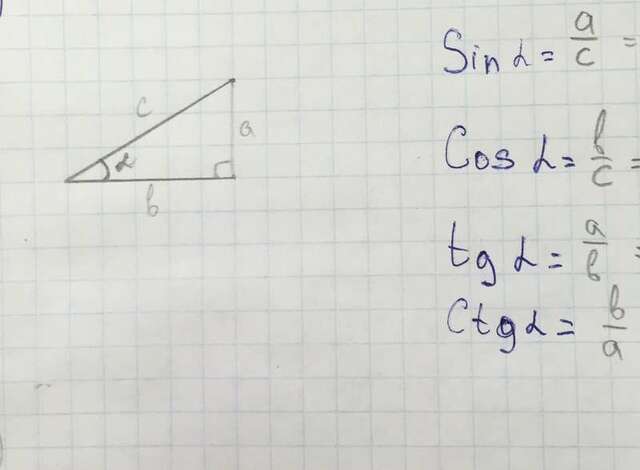 c
a
α
b
Sin α = a/c =
Cos α = b/c =
tg α = a/b =
Ctg α = b/a